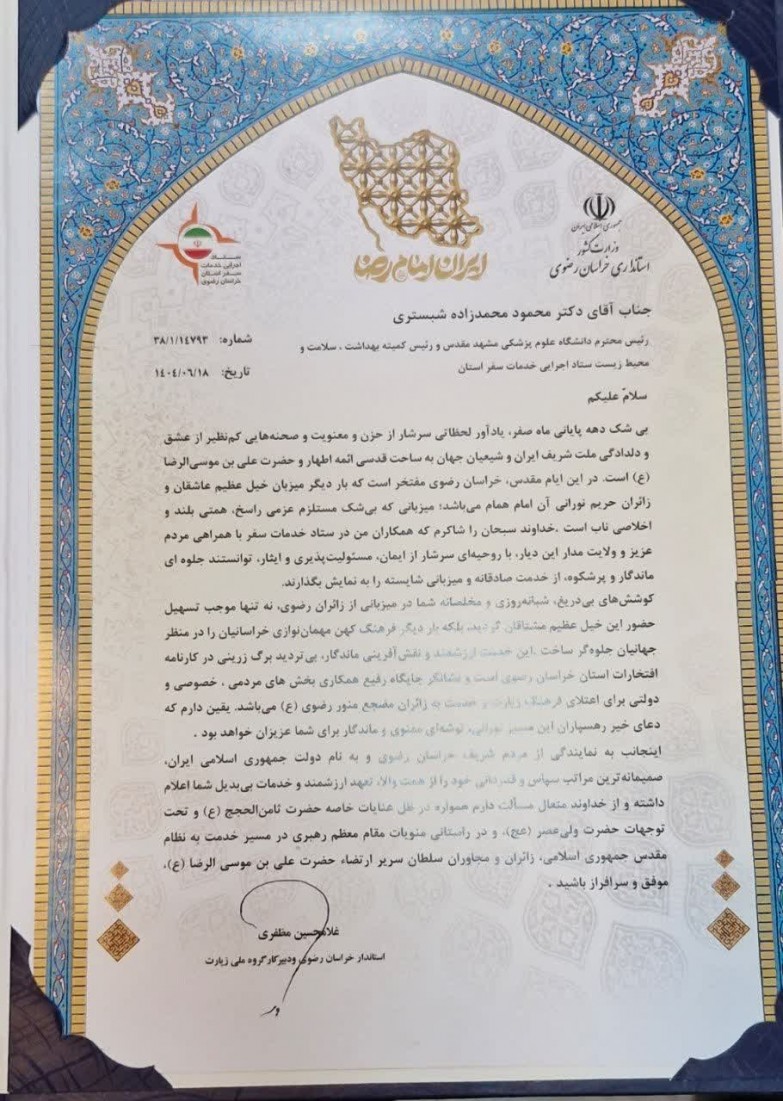 ایران امام رضا
جمهوری اسلامی ایران
وزارت کشور
استانداری خراسان رضوی
ستاد
اجرایی خدمات
سفر استان
خراسان رضوی
جناب آقای دکتر محمود محمدزاده شبستری
شماره: ۳۸/۱/۱۴۷۹۳
رئیس محترم دانشگاه علوم پزشکی مشهد مقدس و رئیس کمیته بهداشت ، سلامت و
محیط زیست ستاد اجرایی خدمات سفر استان
تاریخ: ۱۴۰۴/۰۶/۱۸
سلامٌ علیکم
بی شک دهه پایانی ماه صفر، یادآور لحظاتی سرشار از حزن و معنویت و صحنه‌هایی کم‌نظیر از عشق
و دلدادگی ملت شریف ایران و شیعیان جهان به ساحت قدسی ائمه اطهار و حضرت علی بن موسی‌الرضا
(ع) است. در این ایام مقدس، خراسان رضوی مفتخر است که بار دیگر میزبان خیل عظیم عاشقان و
زائران حریم نورانی آن امام همام می‌باشد؛ میزبانی که بی‌شک مستلزم عزمی راسخ، همتی بلند و
اخلاصی ناب است .خداوند سبحان را شاکرم که همکاران من در ستاد خدمات سفر با همراهی مردم
عزیز و ولایت مدار این دیار، با روحیه‌ای سرشار از ایمان، مسئولیت‌پذیری و ایثار، توانستند جلوه ای
ماندگار و پرشکوه، از خدمت صادقانه و میزبانی شایسته را به نمایش بگذارند.
کوشش‌های بی‌دریغ، شبانه‌روزی و مخلصانه شما در میزبانی از زائران رضوی، نه تنها موجب تسهیل
حضور این خیل عظیم مشتاقان گردید، بلکه بار دیگر فرهنگ کهن مهمان‌نوازی خراسانیان را در منظر
جهانیان جلوه‌گر ساخت .این خدمت ارزشمند و نقش‌آفرینی ماندگار، بی‌تردید برگ زرینی در کارنامه
افتخارات استان خراسان رضوی است و نشانگر جایگاه رفیع همکاری بخش های مردمی ، خصوصی و
دولتی برای اعتلای فرهنگ زیارت و خدمت به زائران مضجع منور رضوی (ع) می‌باشد. یقین دارم که
دعای خیر رهسپاران این مسیر نورانی، توشه‌ای معنوی و ماندگار برای شما عزیزان خواهد بود .
اینجانب به نمایندگی از مردم شریف خراسان رضوی و به نام دولت جمهوری اسلامی ایران،
صمیمانه‌ترین مراتب سپاس و قدردانی خود را از همت والا، تعهد ارزشمند و خدمات بی‌بدیل شما اعلام
داشته و از خداوند متعال مسألت دارم همواره در ظل عنایات خاصه حضرت ثامن‌الحجج (ع) و تحت
توجهات حضرت ولی‌عصر (عج)، و در راستانی منویات مقام معظم رهبری در مسیر خدمت به نظام
مقدس جمهوری اسلامی، زائران و مجاوران سلطان سریر ارتضاء حضرت علی بن موسی الرضا (ع)،
موفق و سرافراز باشید .
غلامحسین مظفری
استاندار خراسان رضوی ودبیرکارگروه ملی زیارت